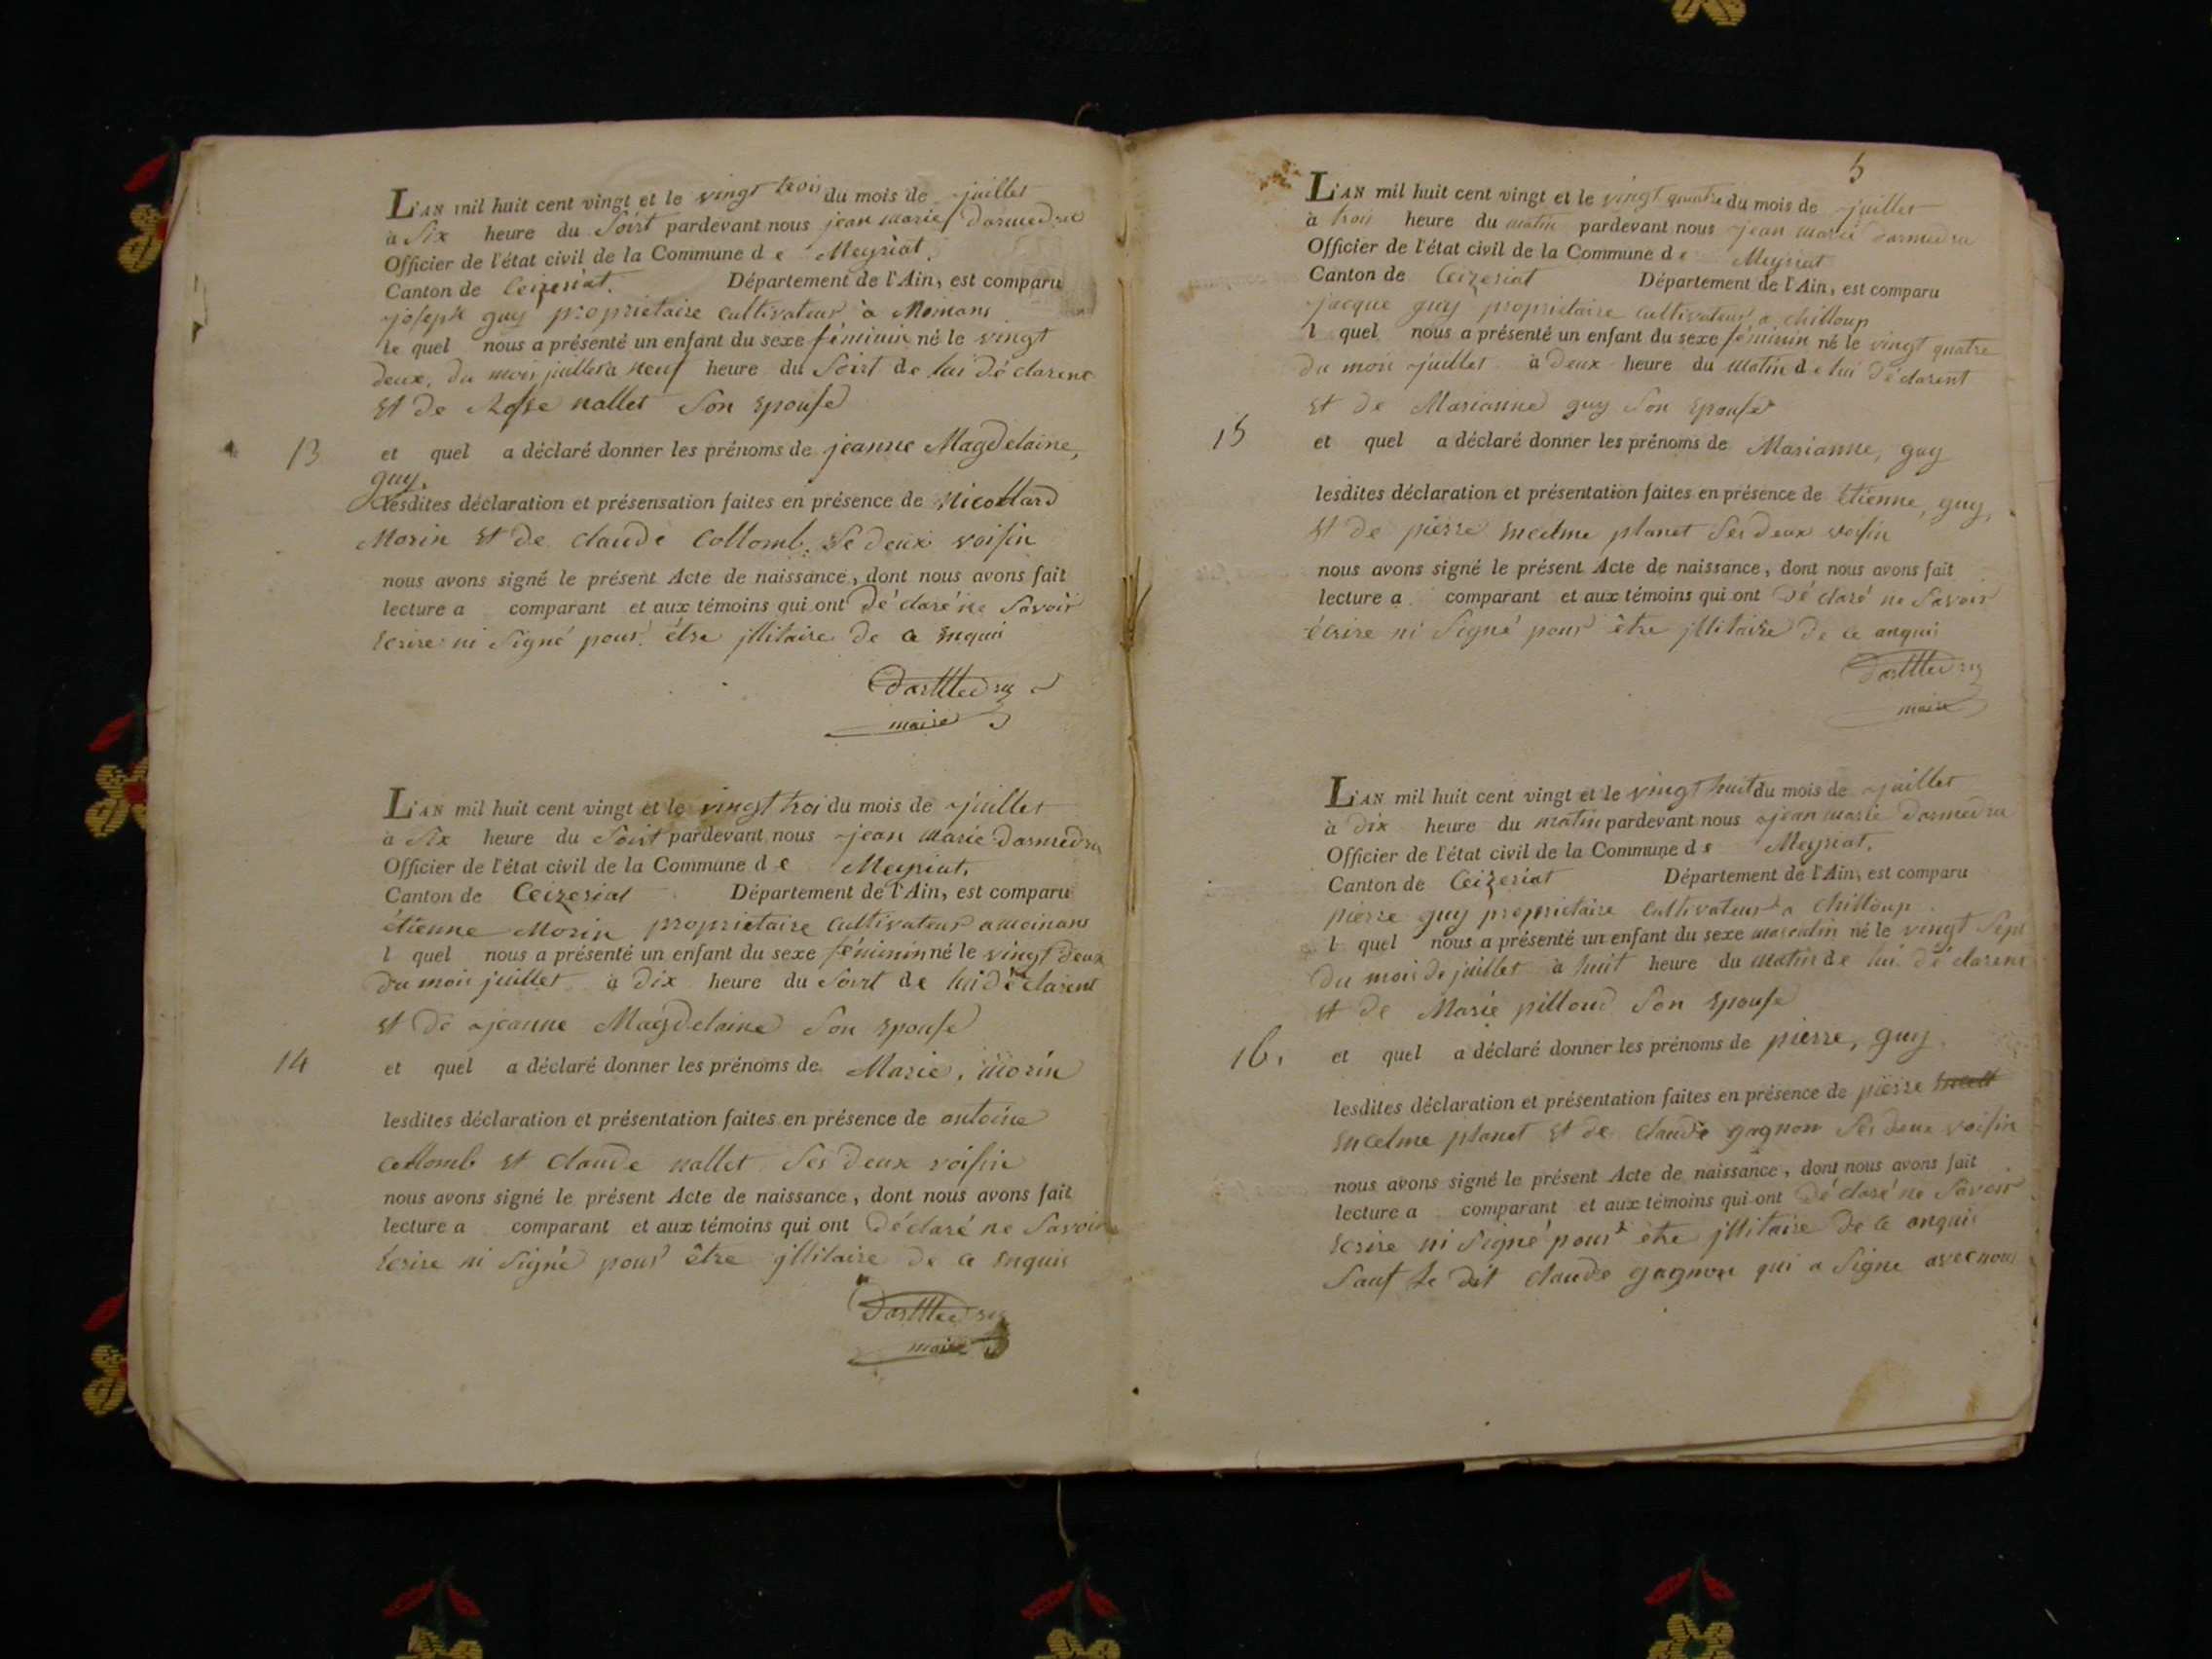 L'AN mil huit cent vingt et le vingt trois du mois de juillet
à Six heure du Soirt pardevant nous jean marie darmedru
Officier de l'état civil de la Commune d e Meyriat,
Canton de Ceizeriat. Département de l'Ain, est comparu
joseph guy proprietaire cultivateur à Moinans
le quel nous a présenté un enfant du sexe féminin né le vingt
deux, du mois juillet à neuf heure du Soirt de lui déclarent
et de Rosse nallet Son epouse
13 et quel a déclaré donner les prénoms de jeanne Magdelaine,
guy,
lesdites déclaration et présensation faites en présence de Nicollard
Morin et de claude Collomb, Se deux voisin
nous avons signé le présent Acte de naissance, dont nous avons fait
lecture a comparant et aux témoins qui ont déclaré ne Savoir
ecrire ni Signé pour être jllitaire de ce enquis
Darmedru
maire
L'AN mil huit cent vingt et le vingt troi du mois de juillet
à Six heure du Soirt pardevant nous jean marie darmedru
Officier de l'état civil de la Commune d e Meyriat,
Canton de Ceizeriat Département de l'Ain, est comparu
étienne Morin proprietaire cultivateur a moinans
l quel nous a présenté un enfant du sexe féminin né le vingt deux
du mois juillet à dix heure du Soirt de lui déclarent
et de jeanne Magdelaine Son epouse
14 et quel a déclaré donner les prénoms de Marie, Morin
lesdites déclaration et présentation faites en présence de antoine
Collomb et claude nallet Ses deux voisin
nous avons signé le présent Acte de naissance, dont nous avons fait
lecture a comparant et aux témoins qui ont déclaré ne Savoir
ecrire ni Signé pour être jllitaire de ce enquis
Darmedru
maire
5
L'AN mil huit cent vingt et le vingt quatre du mois de juillet
à trois heure du matin pardevant nous jean marie darmedru
Officier de l'état civil de la Commune d e Meyriat
Canton de Ceizeriat Département de l'Ain, est comparu
jacque guy proprietaire cultivateur a chilloup
l quel nous a présenté un enfant du sexe féminin né le vingt quatre
du mois juillet à deux heure du matin de lui déclarent
et de Marianne guy Son epouse
15 et quel a déclaré donner les prénoms de Marianne, guy
lesdites déclaration et présentation faites en présence de étienne, guy,
et de pierre encelme planet Ses deux voisin
nous avons signé le présent Acte de naissance, dont nous avons fait
lecture a comparant et aux témoins qui ont déclaré ne Savoir
écrire ni Signé pour être jllitaire de ce anquis
Darmedru
maire
L'AN mil huit cent vingt et le vingt huit du mois de juillet
à dix heure du matin pardevant nous jean marie darmedru
Officier de l'état civil de la Commune d e Meyriat,
Canton de Ceizeriat Département de l'Ain, est comparu
pierre guy proprietaire cultivateur a chilloup
l quel nous a présenté un enfant du sexe masculin né le vingt Sept
du mois de juillet à huit heure du matin de lui déclarent
et de Marie pilloud Son epouse
16. et quel a déclaré donner les prénoms de pierre, guy
lesdites déclaration et présentation faites en présence de pierre
encelme planet et de claude gagnon Ses deux voisin
nous avons signé le présent Acte de naissance, dont nous avons fait
lecture a comparant et aux témoins qui ont déclaré ne Savoir
ecrire ni Signé pour être jllitaire de ce anquis
Sauf le dit claude gagnon qui a Signe avec nous